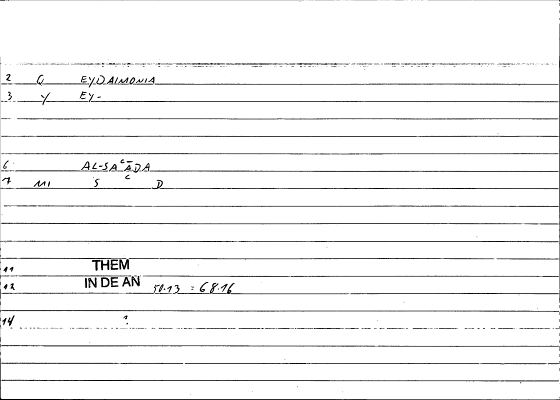 2 G EYDAIMONIA
3 Y EY-
6 AL-SAʿĀDA
7 MI S ʿ D
11 THEM
12 IN DE AN 50.13 = 68.16
14 ?